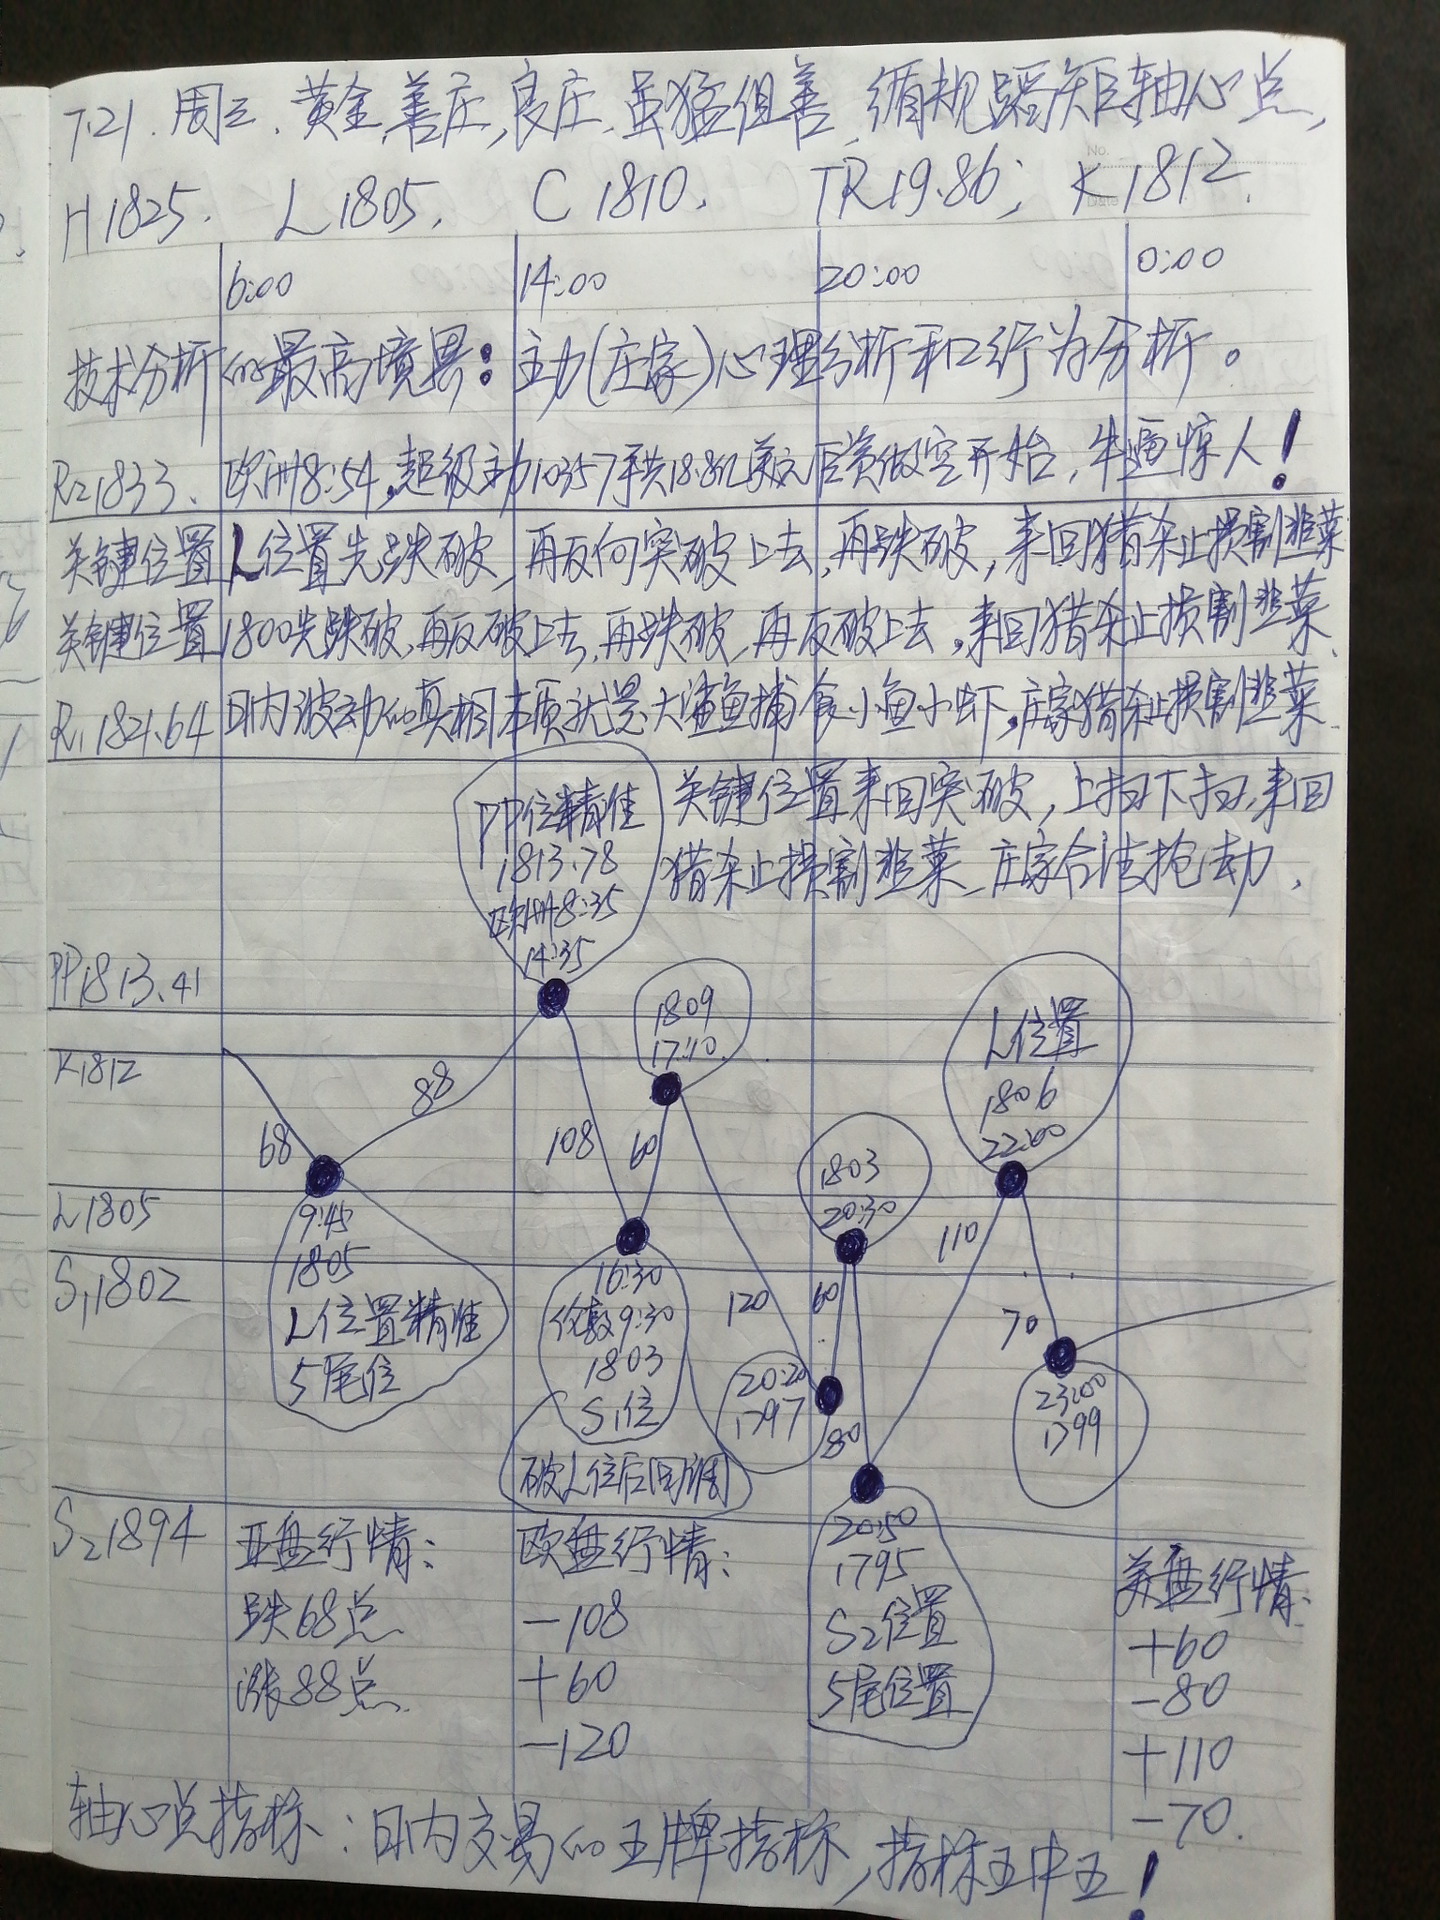 7.21.周三、黄金,善庄,良庄.虽猛但善,循规蹈矩轴心点,
H1825. L1805. C1810. TR19.86; K1812.
6:00 14:00 20:00 0:00
技术分析的最高境界:主力(庄家)心理分析和行为分析。
R21833. 欧洲8:54,超级主力10357手共18.8亿美元巨资做空开始,牛逼惊人!
关键位置L位置先跌破,再反向突破上去,再跌破,来回猎杀止损割韭菜
关键位置1800先跌破,再反破上去,再跌破,再反破上去,来回猎杀止损割韭菜.
R1 1821.64 日内波动的真相本质就是大鲨鱼捕食小鱼小虾,庄家猎杀止损割韭菜.
关键位置来回突破,上扫下扫,来回
猎杀止损割韭菜,庄家合法抢劫,
PP位精准
1813.78
欧洲8:35
14:35
PP1813.41
1809
17:10
L位置
1806
22:00
K1812
88
68
108
60
1803
20:30
110
L1805
9:45
1805
L位置精准
5尾位
S1 1802
16:30
伦敦9:30
1803
S1位
破L位后回调
120
60
70
20:20
1797
80
23:00
1799
S2 1894
20:50
1795
S2位置
5尾位置
亚盘行情:
跌68点
涨88点.
欧盘行情:
-108
+60
-120
美盘行情:
+60
-80
+110
-70.
轴心点指标:日内交易的王牌指标,指标王中王!